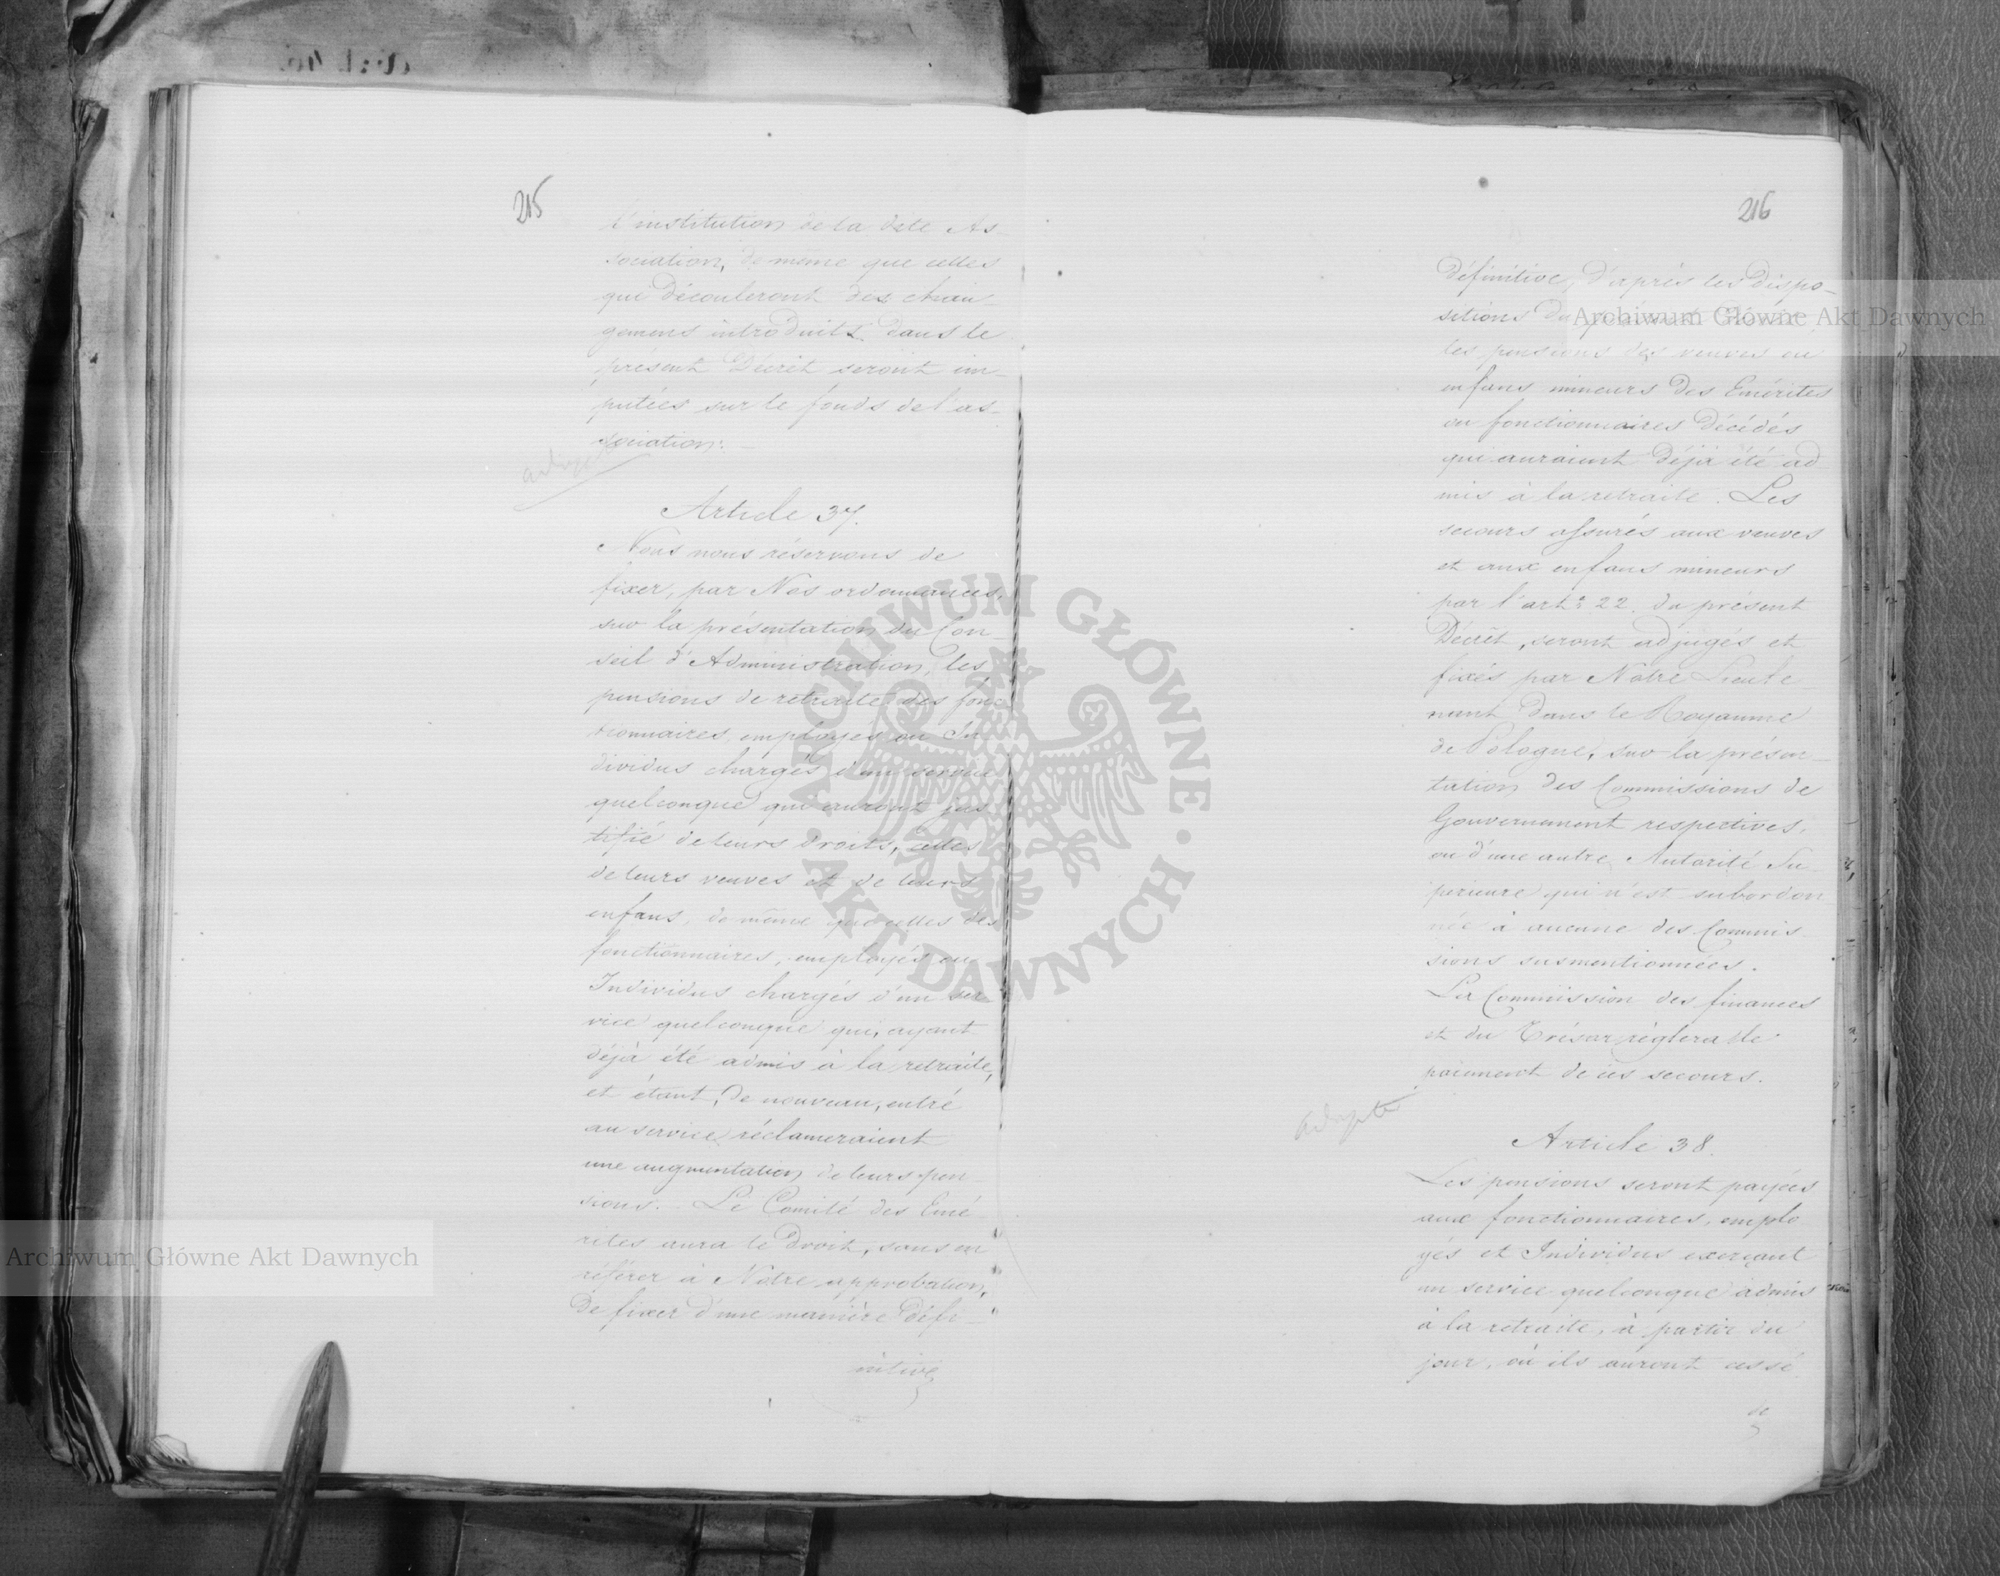 215
l'institution de la dete As-
sociation, de même que celles
que découleront des chan-
gemens introduits dans le
présent Décrêt seront im-
putées sur le fonds de l'as-
sociation.
adopté
Article 37.
Nous nous réservons de
fixer, par Nos ordonnances,
sur la présentation du Con-
seil d'Administration, les
pensions de retraite des fonc
tionnaires, employés ou In
dividus chargés d'un service
quelconque qui auront jus
tifié de leurs droits, celles
de leurs veuves et de leurs
enfans, de même que celles des
fonctionnaires, employés ou
Individus chargés d'un ser-
vice quelconque qui, ayant
déjà été admis à la retraite,
et étant, de nouveau, entré
au service, réclameraient
une augmentation de leurs pen-
sions. - Le Comité des Emé
rites aura le droit, sans en
référer à Nôtre approbation,
de fixer d'une manière défi-
nitive
216
définitive, d'après les dispo-
sitions du présent
les pensions des veuves ou
enfans mineurs des Emérites
ou fonctionnaires décédés
qui auraient déjà été ad
mis à la retraite. Les
secours assurés aux veuves
et aux enfans mineurs
par l'art: 22. du présent
Décrêt, seront adjugés et
fixés par Nôtre Lieute-
nant dans le Royaume
de Pologne, sur la présen-
tation des Commissions de
Gouvernement respectives,
ou d'une autre Autorité Su
périeure qui n'est subordon
née à aucune des Commis-
sions susmentionnées.
La Commission des finances
et du Trésor règlera le
paiement de ces secours.
adopté
Article 38.
Les pensions seront payées
aux fonctionnaires, emplo
yés et Individus exerçant
un service quelconque admis
à la retraite, à partir du
jour, où ils auront cessé
de
Archiwum Główne Akt Dawnych
Archiwum Główne Akt Dawnych
ARCHIWUM GŁÓWNE · AKT DAWNYCH ·